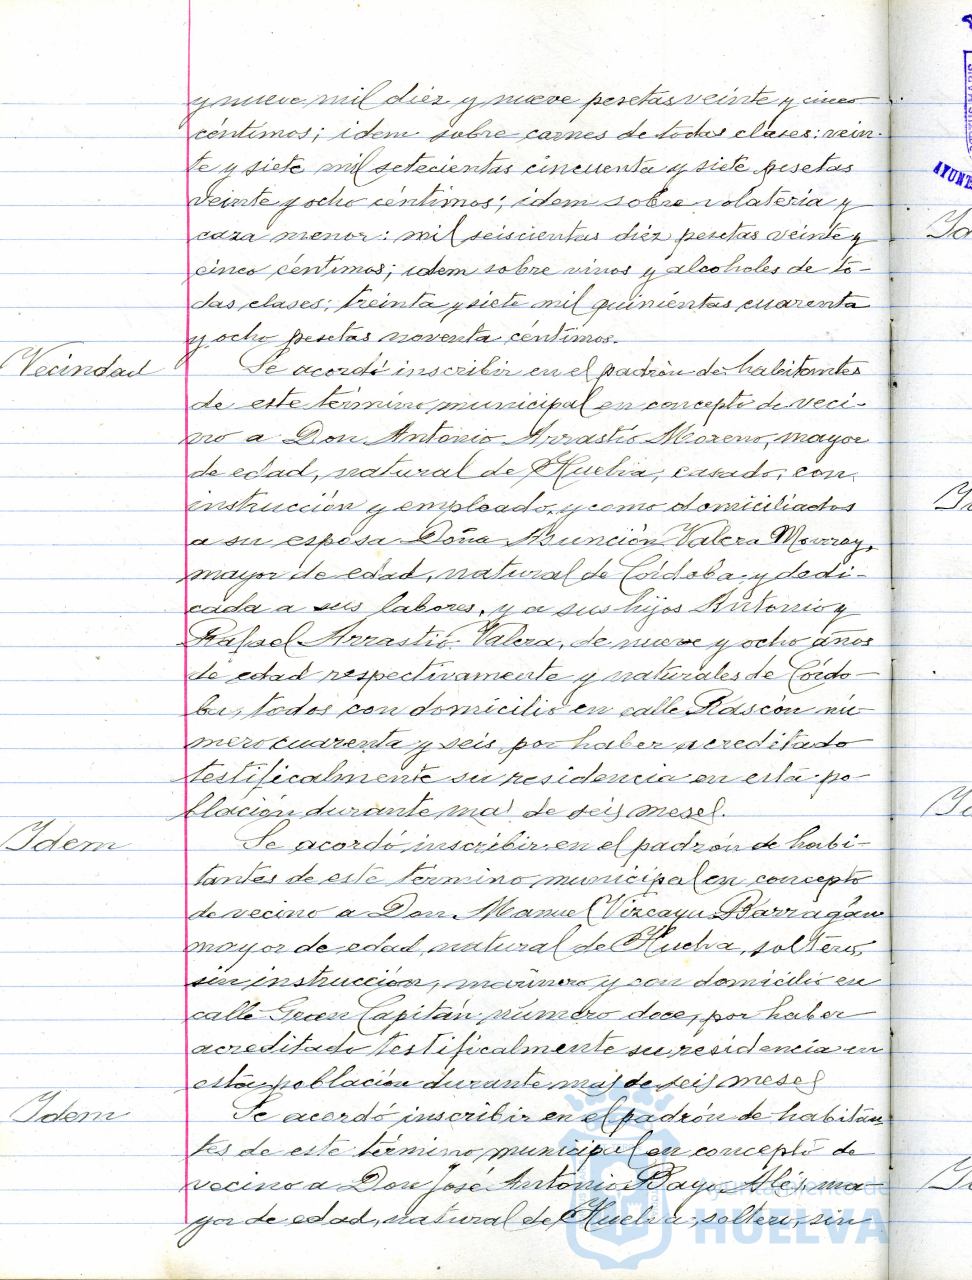 y nueve mil diéz y nueve pesetas veinte y cinco
céntimos; idem sobre carnes de todas clases: vein-
te y siete mil setecientas cincuenta y siete pesetas
veinte y ocho céntimos; idem sobre volateria y
caza menor: mil seiscientas diéz pesetas veinte y
cinco céntimos; idem sobre vinos y alcoholes de to-
das clases: treinta y siete mil quinientas cuarenta
y ocho pesetas noventa céntimos.
Vecindad
Se acordó inscribir en el padrón de habitantes
de este término municipal en concepto de veci-
no a Don Antonio Arrastio Moreno, mayor
de edad, natural de Huelva, casado, con
instrucción y empleado, y como domiciliados
a su esposa Doña Asunción Valera Monroy,
mayor de edad, natural de Córdoba y dedi-
cada a sus labores, y a sus hijos Antonio y
Rafael Arrastio Valera, de nueve y ocho años
de edad respectivamente y naturales de Córdo-
ba, todos con domicilio en calle Rascón nú-
mero cuarenta y seis, por haber acreditado
testificalmente su residencia en esta po-
blación durante mas de seis meses.
Idem
Se acordó inscribir en el padrón de habi-
tantes de este término municipal en concepto
de vecino a Don Manuel Vizcaya Barragán
mayor de edad, natural de Huelva, soltero,
sin instrucción, marinero y con domicilio en
calle Gran Capitán número doce, por haber
acreditado testificalmente su residencia en
esta población durante mas de seis meses
Idem
Se acordó inscribir en el padrón de habitan-
tes de este término municipal en concepto de
vecino a Don José Antonio Bayo Alés, ma-
yor de edad, natural de Huelva, soltero, sin
Ayuntamiento de
HUELVA